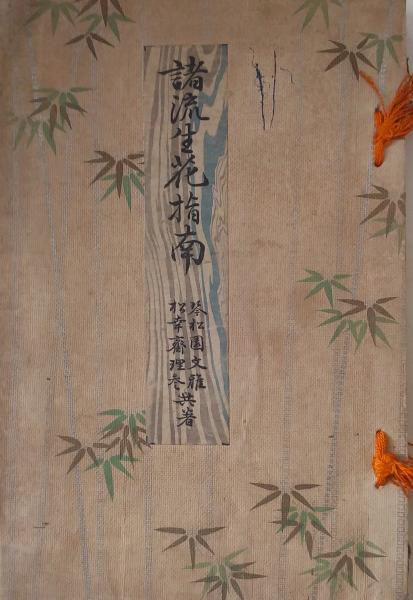 諸流生花指南
琴松園文雅
松幸齋理参共著